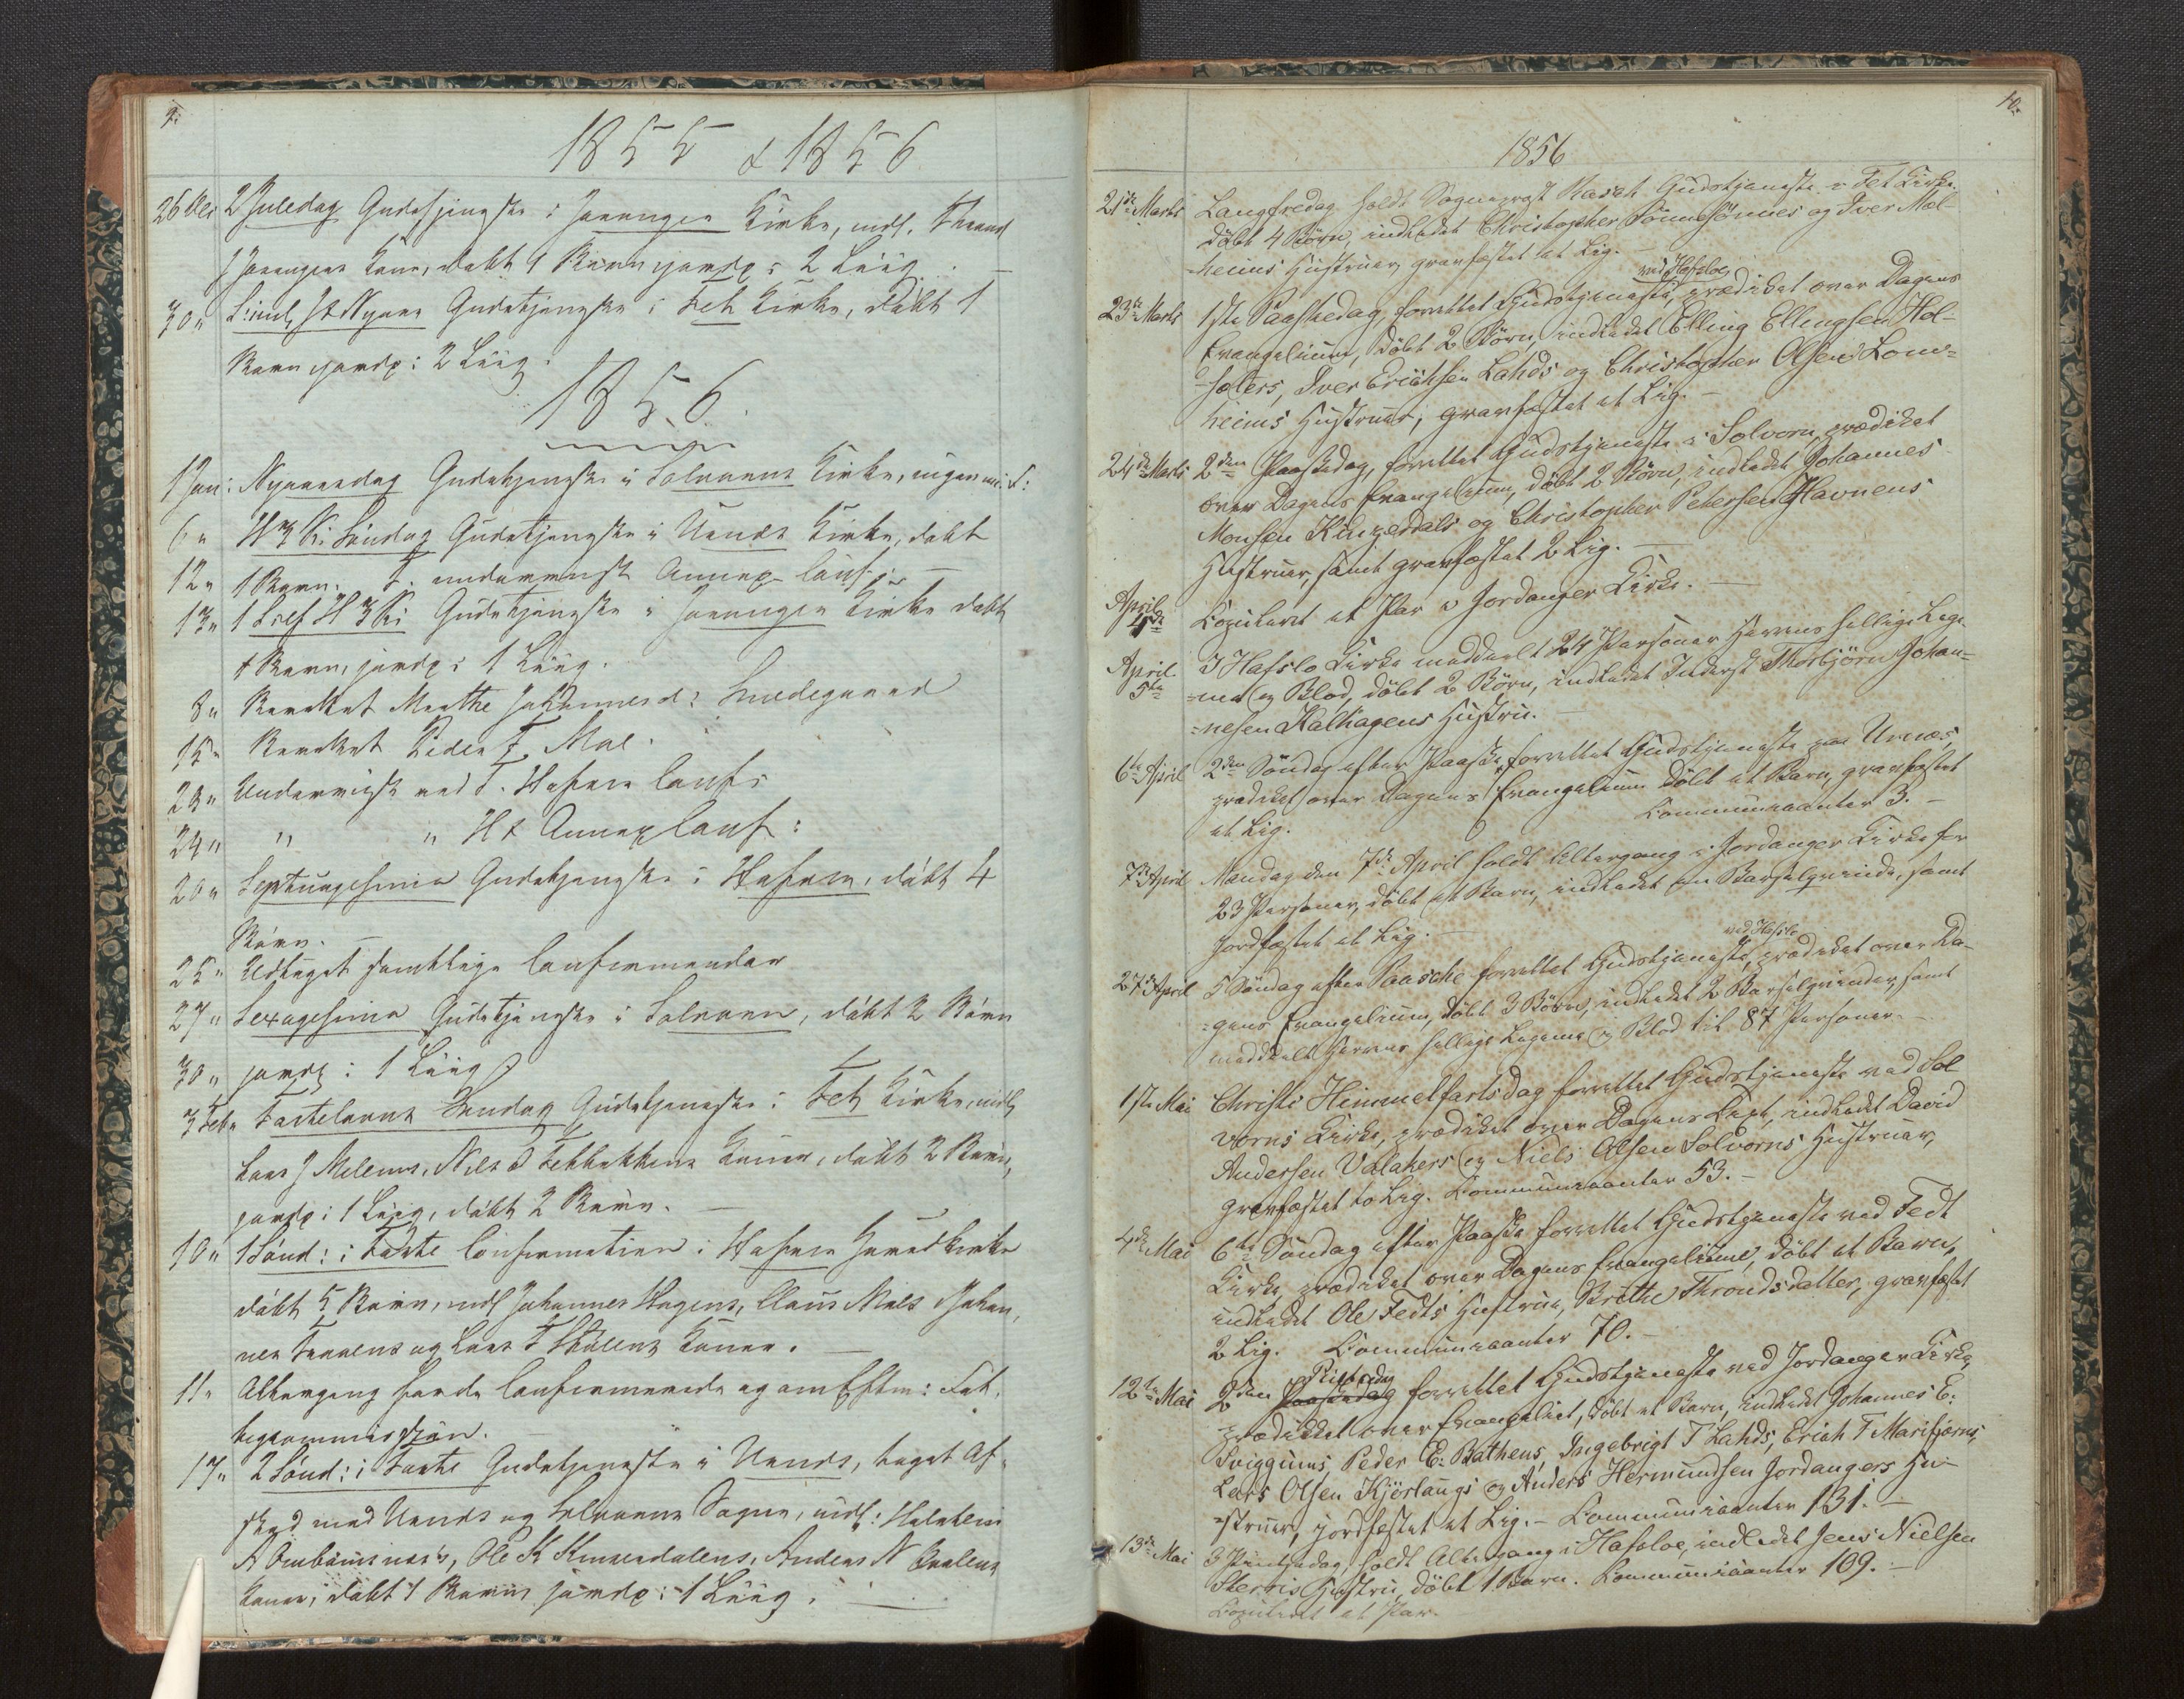 9.
1855 & 1856
26 Dec 2 Juledag Gudstjeneste i Joranger Kirke, indl. Thrond
J Jorangers Kone, døbt 1 Barn jordf: 2 Liig. —
30 " Sönd f Nytaar Gudstjeneste i Fet Kirke, døbt 1
Barn jordf: 2 Liig.
1856.
1 Jan: Nytaarsdag Gudstjeneste i Solvorns Kirke, ingen
6 " H 3 K: Söndag Gudstjeneste i Urnes Kirke, døbt
12 " 1 Barn. underviist Annex Conf: —
13 " 1 S ef H 3 K: Gudstjeneste i Joranger Kirke døbt
1 Barn, jordf: 1 Liig.
8 " Berettet Marthe Johannesd: Smedegaard
15 " Berettet Peder T. Mol.
23 " Underviist ved T. Hafslo Conf:
24 " " " Annex Conf:
20 " Septuagesima Gudstjeneste i Hafslo, døbt 4
Börn. —
25 " Udtaget samtlige Confirmander
27 " Sexagesima Gudstjeneste i Solvorn, døbt 2 Börn
30 " jordf: 1 Liig
3 Feb " Fastelavns Söndag Gudstjeneste i Fet Kirke, indl
Lars J Melems, Nils Fetbakkens Koner, døbt 2 Börn,
jordf: 1 Liig, døbt 2 Börn. —
10 " 1 Sönd: i Faste Confirmation i Hafslo Hovedkirke
døbt 5 Börn, indl Johannes Hagens, Claus Mols Johan,
nes og Lars T Koner. —
11 " Altergang for de Confirmerede og om Eftm: Fat,
tigcommission.
17 " 2 Sönd: i Faste Gudstjeneste i Urnes, taget Af,
sked med Urnes og Solvorns Sogne, indl:
A Ole K Kinserdalens, Anders N
Koner, døbt 1 Barn jordf: 1 Liig. —
10.
1856
21de Marts Langfredag holdt Sogneprest Rasch Gudstjeneste i Fet Kirke
döbt 4 Börn, indledet Christopher Sönnesönnes og Iver Mol-
heims Hustruer, gravfæstet et Lig. —
ved Hafsloe
23de Marts 1ste Paaskedag, forrettet Gudstjeneste, prædiket over Dagens
Evangelium, döbt 2 Börn, indledet Elling Ellingsen Hol-
sæters, Iver Erichsen Lahds og Christopher Olsen Lom-
heims Hustruer, gravfæstet et Lig. —
24de Marts 2den Paaskedag, forrettet Gudstjeneste i Solvorn, prædiket
over Dagens Evangelium, döbt 2 Börn, indledet Johannes
Monsen Kinzerdals og Christopher Petersen Havnens
Hustruer, samt gravfæstet 2 Lig. —
April 4de Copuleret et Par i Jordanger Kirke. —
April 5te I Hafslo Kirke meddeelt 24 Personer Herrens hellige Lege-
=me og Blod, döbt 2 Börn, indledet Inderst Thorbjörn Johan=
=nesen Kalhagens Hustru. —
6te April 2den Söndag efter Paaske, forrettet Gudstjeneste paa Urnæs,
prædiket over Dagens Evangelium döbt et Barn, gravfæstet
et Lig. Communicanter 3. —
7de April Mandag den 7de April holdt Altergang i Jordanger Kirke for
23 Personer, döbt et Barn, indledet en Barselqvinde, samt
Jordfæstet et Lig. —
ved Hafslo
27de April 5 Söndag efter Paaske forrettet Gudstjeneste, prædiket over Da-
=gens Evangelium, döbt 3 Börn, indledet 2 Barselqvinder, samt
meddeelt Herrens hellige Legeme og Blod til 87 Personer. —
1ste Mai Christi Himmelfartsdag forrettet Gudstjeneste ved Sol
vorns Kirke, prædiket over Dagens Text, indledet David
Andersen Valakers og Niels Olsen Solvorns Hustruer,
gravfæstet to Lig. Communicanter 53. —
4de Mai 6te Söndag efter Paaske forrettet Gudstjeneste ved Fedt
Kirke, prædiket over Dagens Evangelium, döbt et Barn,
indledet Ole Fedts Hustrue, Brithe Throndsdatter, gravfæstet
2 Lig. Communicanter 70. —
Pintsedag
12te Mai 2den Paaskedag forrettet Gudstjeneste ved Jordanger Kirke,
prædikket over Evangeliet, döbt et Barn, indledet Johannes E:
Sviggums Peder E: Bathens, Ingebrigt T Lahds, Erich T Marifjærns,
Lars Olsen Kjörlaugs og Anders Hermundsen Jordangers Hu-
=struer, jordfæstet et Lig. — Communicanter 131. —
13de Mai 3 Pintsedag holdt Altergang i Hafsloe, indledet Jens Nielsen
Sterris Hustru, döbt 1 Barn. Communicanter 109. —
Copuleret et Par.